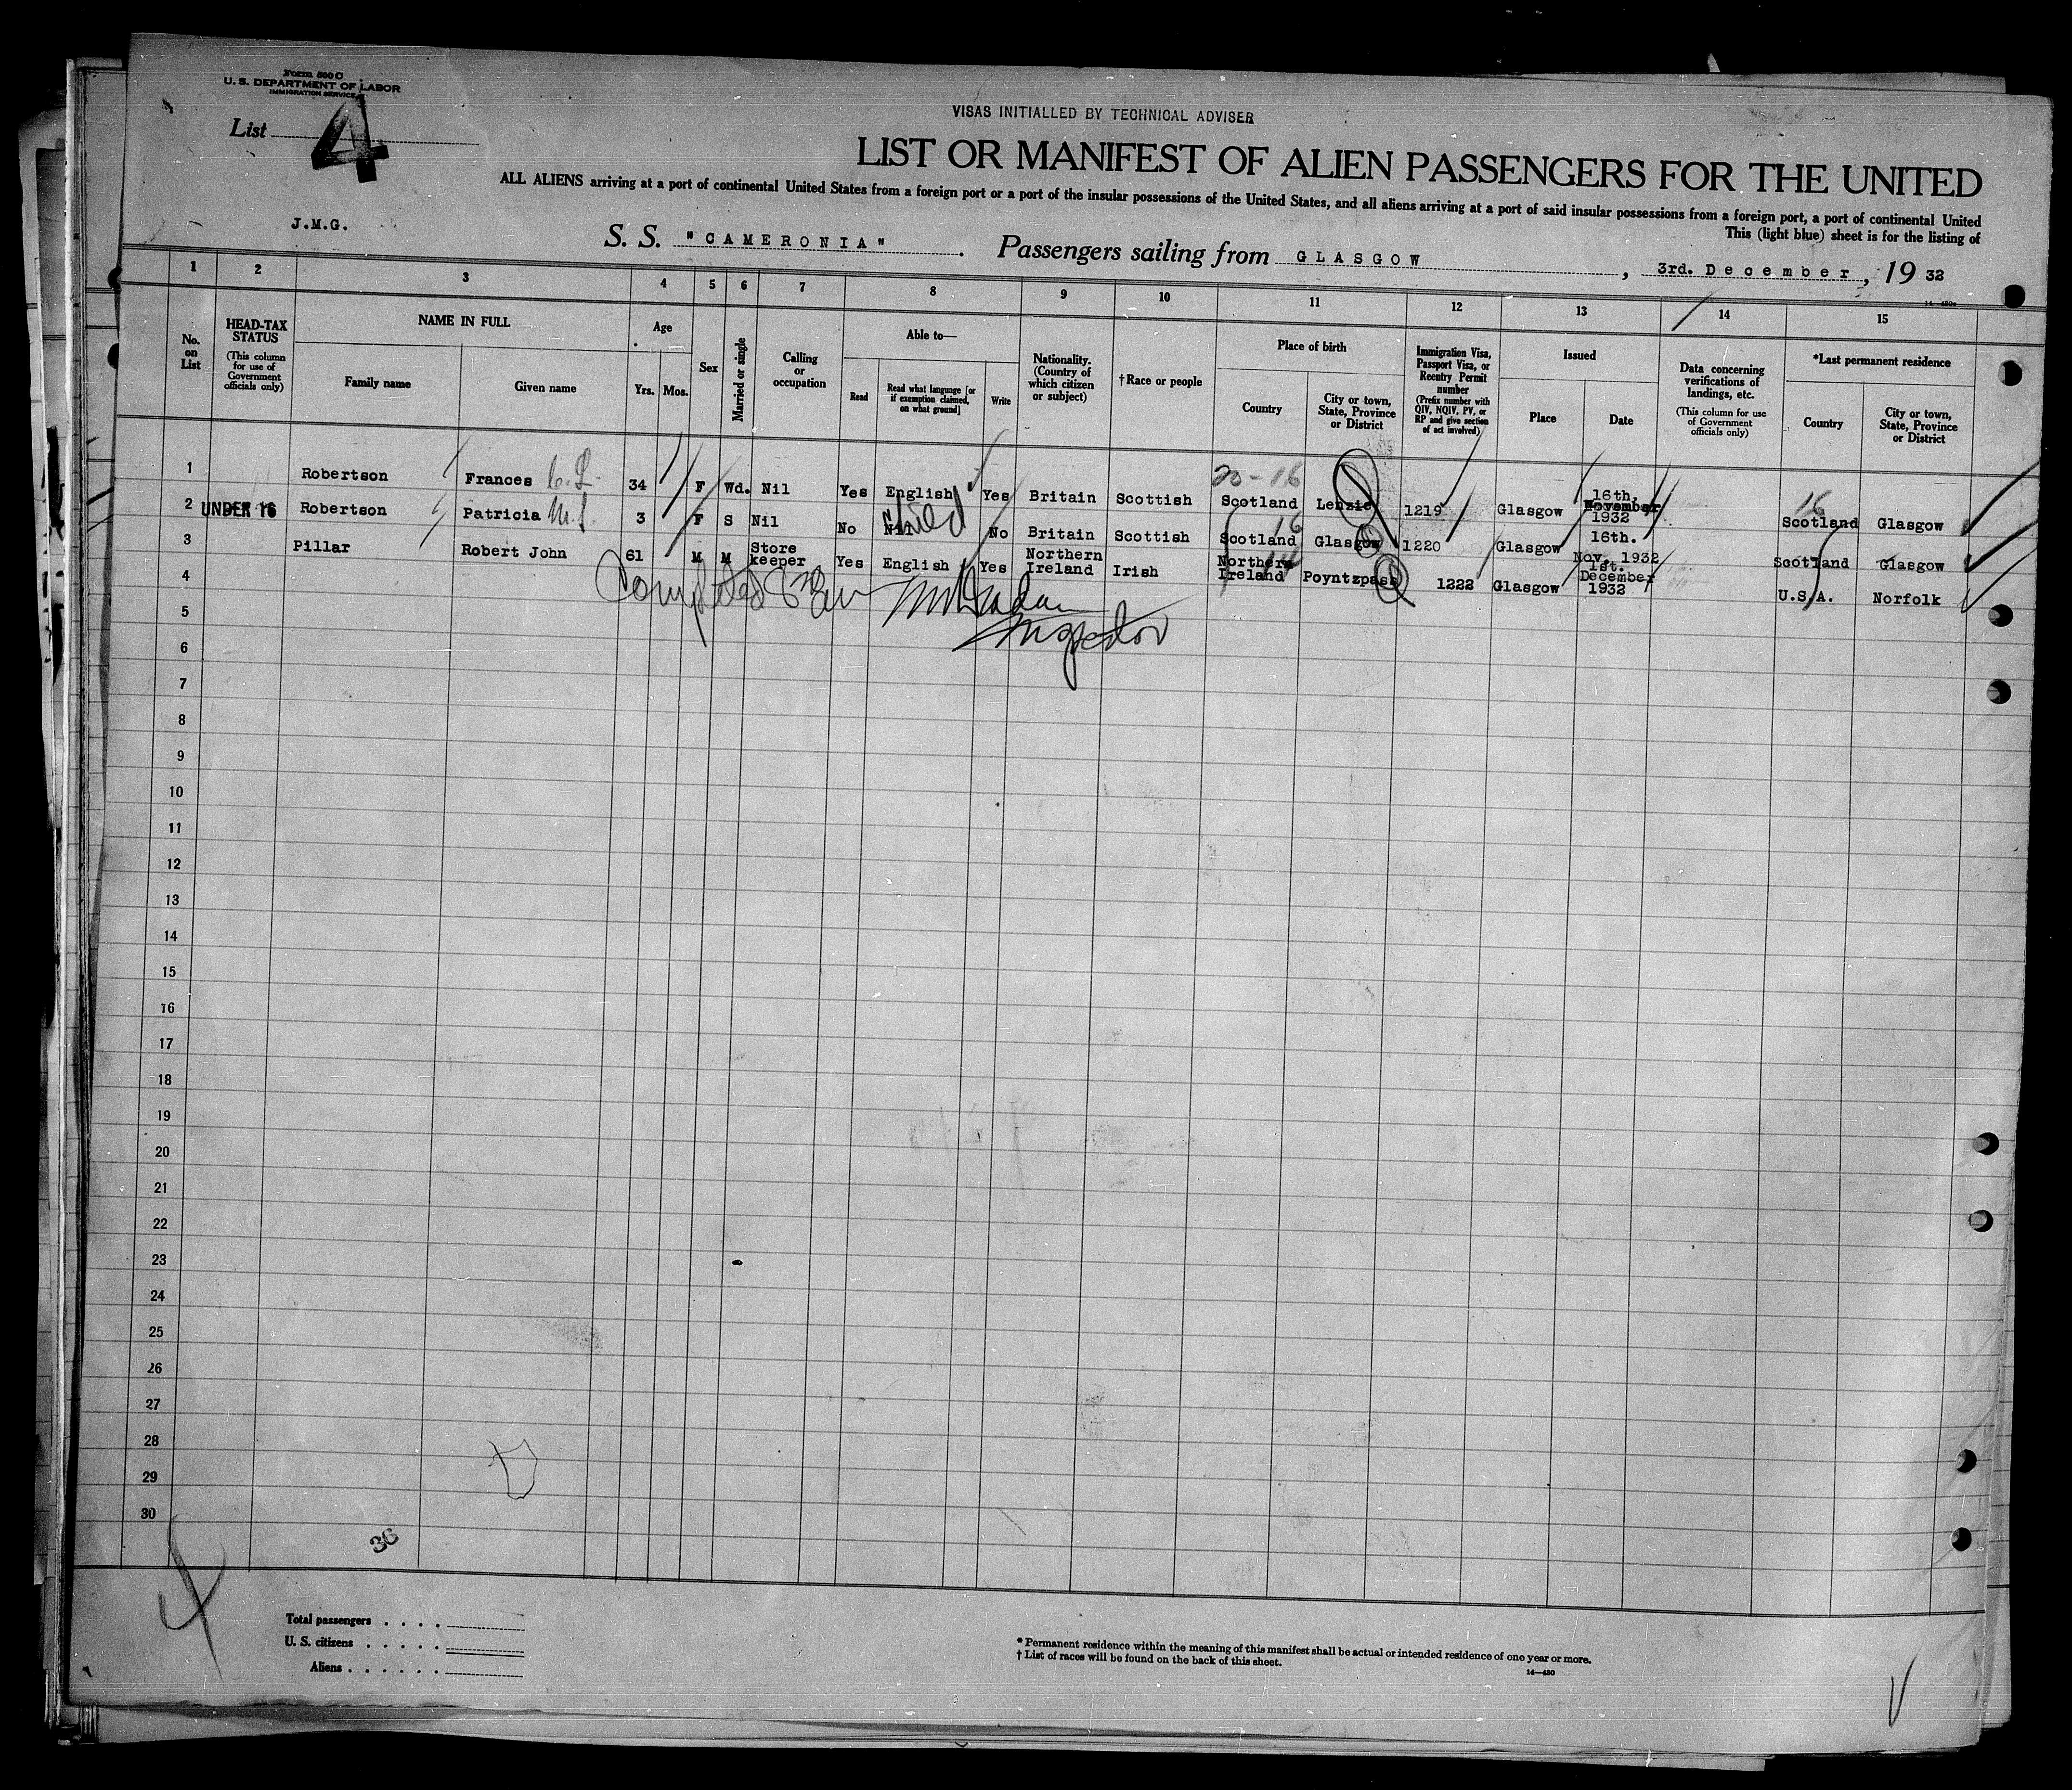 Form 500 C
U. S. DEPARTMENT OF LABOR
IMMIGRATION SERVICE
List 4
VISAS INITIALLED BY TECHNICAL ADVISER
LIST OR MANIFEST OF ALIEN PASSENGERS FOR THE UNITED
ALL ALIENS arriving at a port of continental United States from a foreign port or a port of the insular possessions of the United States, and all aliens arriving at a port of said insular possessions from a foreign port, a port of continental United
This (light blue) sheet is for the listing of
J.M.G.
S. S. "CAMERONIA". Passengers sailing from GLASGOW, 3rd. December, 19 32
1 2 3 4 5 6 7 8 9 10 11 12 13 14 15
No. on List
HEAD-TAX STATUS
(This column for use of Government officials only)
NAME IN FULL
Family name
Given name
Age
Yrs. Mos.
Sex
Married or single
Calling or occupation
Able to—
Read
Read what language [or if exemption claimed, on what ground]
Write
Nationality. (Country of which citizen or subject)
†Race or people
Place of birth
Country
City or town, State, Province or District
Immigration Visa, Passport Visa, or Reentry Permit number
(Prefix number with QIV, NQIV, PV, or RP and give section of act involved)
Issued
Place
Date
Data concerning verifications of landings, etc.
(This column for use of Government officials only)
*Last permanent residence
Country
City or town, State, Province or District
20-16 16
1 Robertson Frances 34 F Wd. Nil Yes English Yes Britain Scottish Scotland Lenzie 1219 Glasgow 16th. November 1932 Scotland Glasgow
2 UNDER 16 Robertson Patricia 3 F S Nil No Nil Child No Britain Scottish Scotland 16 Glasgow 1220 Glasgow 16th. Nov. 1932 Scotland Glasgow
3 Pillar Robert John 61 M M Store keeper Yes English Yes Northern Ireland Irish Northern Ireland Poyntzpass 1222 Glasgow 1st. December 1932 U.S.A. Norfolk
4
Inspector
5
6
7
8
9
10
11
12
13
14
15
16
17
18
19
20
21
22
23
24
25
26
27
28
29
30
36
Total passengers . . . .
U. S. citizens . . . . .
Aliens . . . . . .
* Permanent residence within the meaning of this manifest shall be actual or intended residence of one year or more.
† List of races will be found on the back of this sheet.
14—430